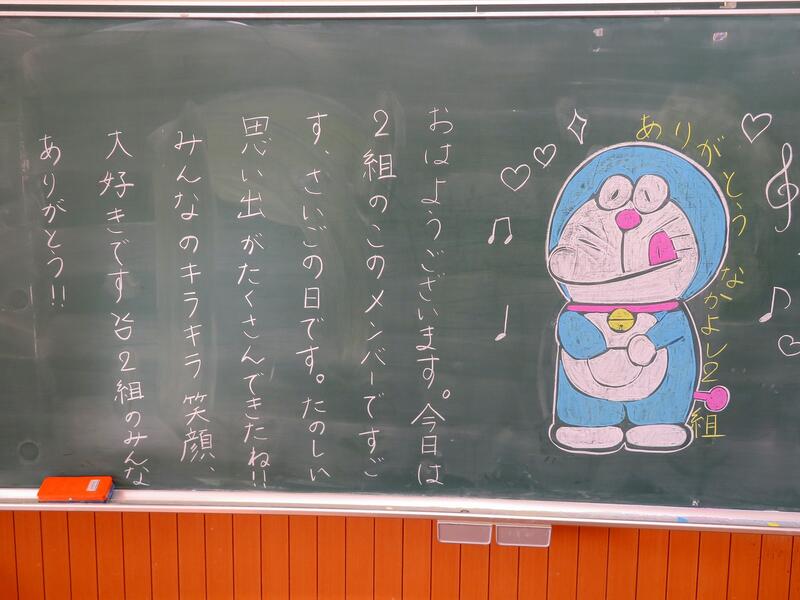 おはようございます。今日は
2組のこのメンバーですご
す、さいごの日です。たのしい
思い出がたくさんできたね!!
みんなのキラキラ笑顔、
大好きです 2組のみんな
ありがとう!!
ありがとう なかよし2組